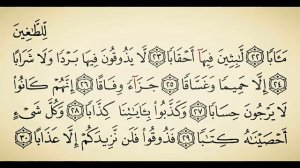 لِّلطَّٰغِينَ
مَـَٔابًا ﴿٢٢﴾ لَّٰبِثِينَ فِيهَآ أَحْقَابًا ﴿٢٣﴾ لَّا يَذُوقُونَ فِيهَا بَرْدًا وَلَا شَرَابًا
﴿٢٤﴾ إِلَّا حَمِيمًا وَغَسَّاقًا ﴿٢٥﴾ جَزَآءً وِفَاقًا ﴿٢٦﴾ إِنَّهُمْ كَانُوا۟
لَا يَرْجُونَ حِسَابًا ﴿٢٧﴾ وَكَذَّبُوا۟ بِـَٔايَٰتِنَا كِذَّابًا ﴿٢٨﴾ وَكُلَّ شَىْءٍ
أَحْصَيْنَٰهُ كِتَٰبًا ﴿٢٩﴾ فَذُوقُوا۟ فَلَن نَّزِيدَكُمْ إِلَّا عَذَابًا ﴿٣٠﴾